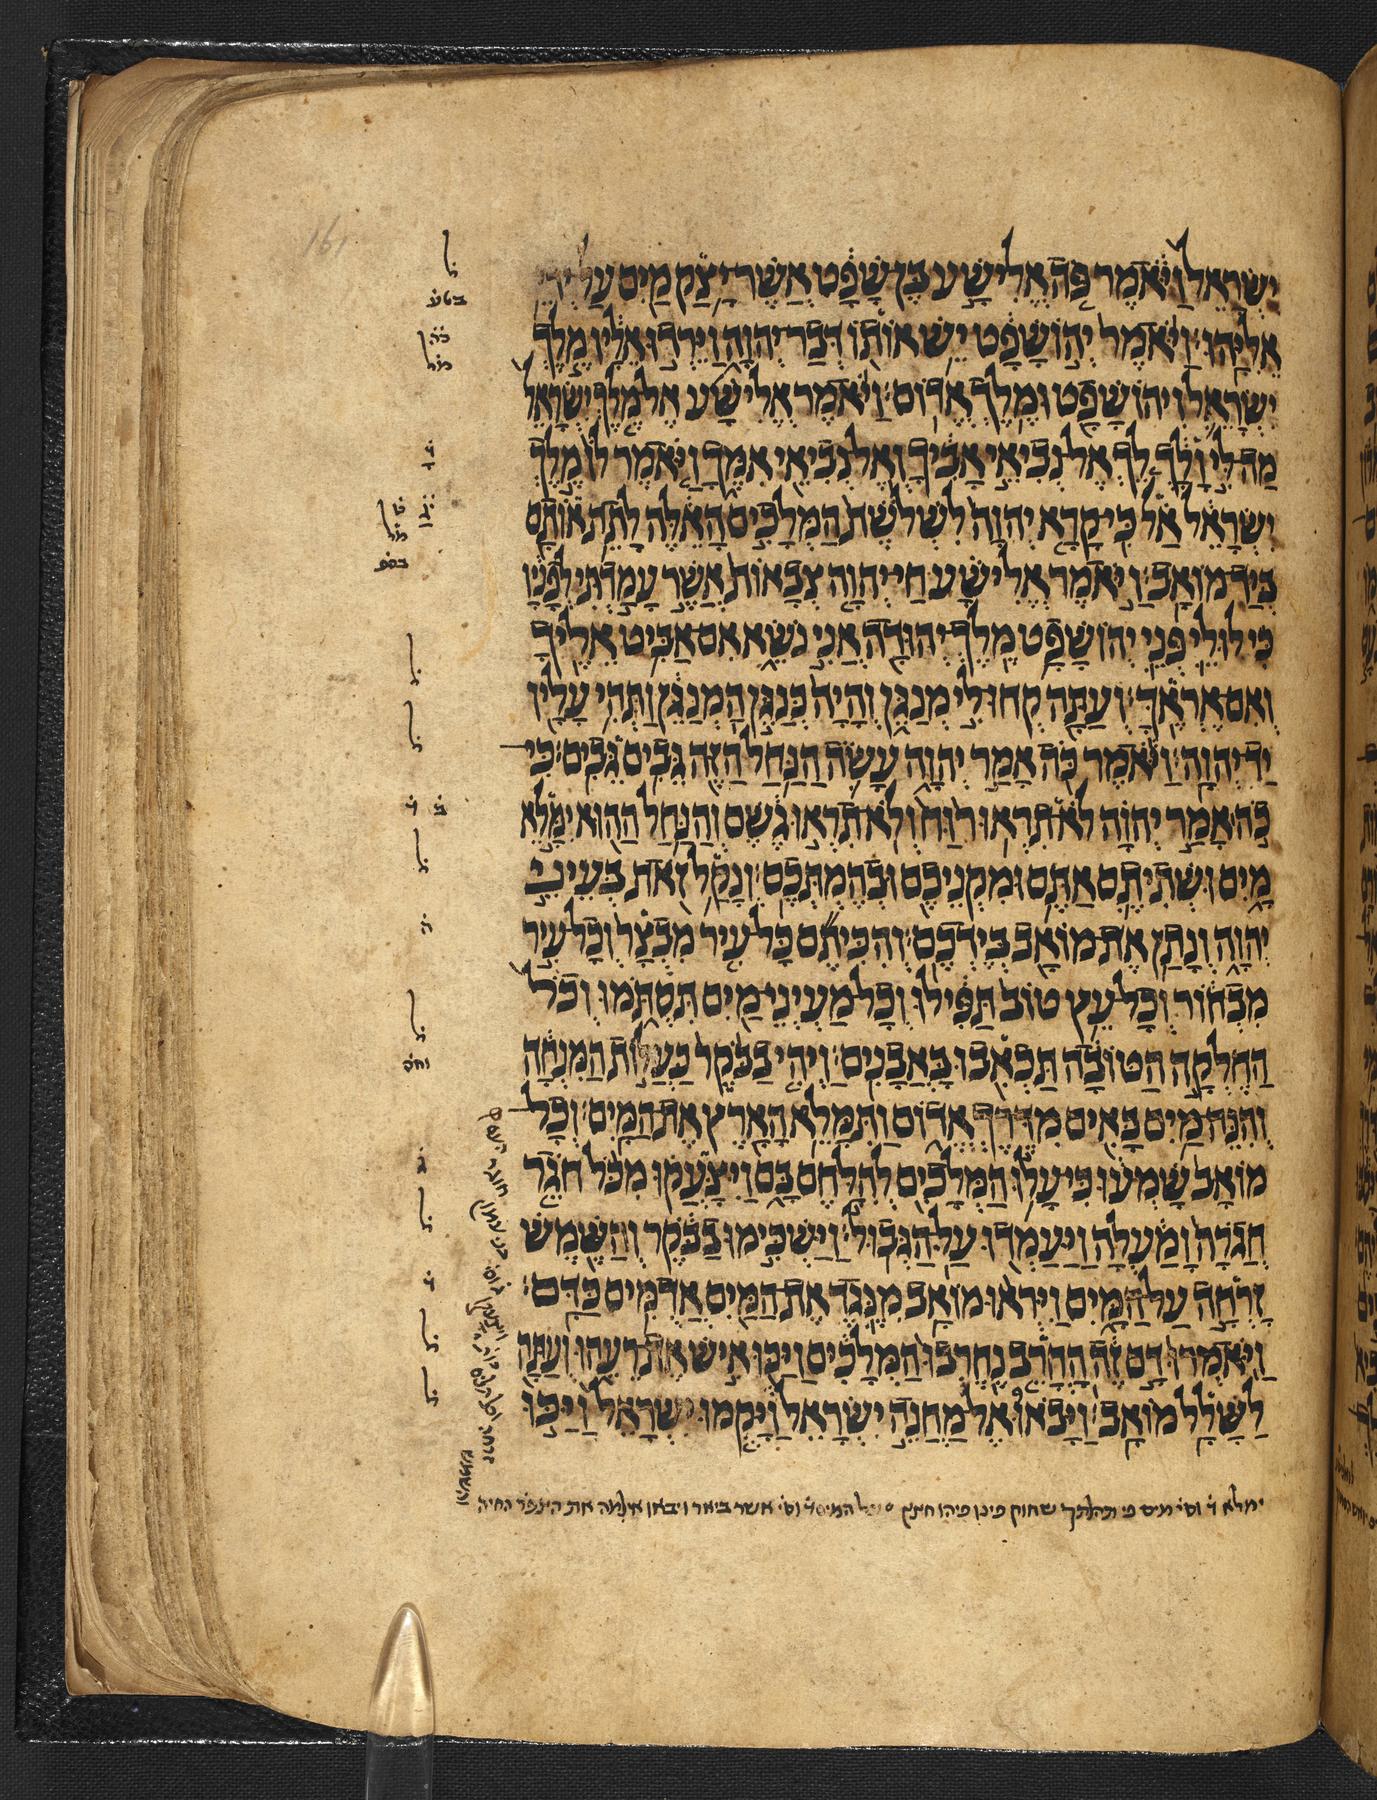 יִשְׂרָאֵל וַיֹּאמֶר פֹּה אֱלִישָׁע בֶּן שָׁפָט אֲשֶׁר יָצַק מַיִם עַל יְדֵי
אֵלִיָּהוּ׃ וַיֹּאמֶר יְהוֹשָׁפָט יֵשׁ אוֹתוֹ דְּבַר יְהוָה וַיֵּרְדוּ אֵלָיו מֶלֶךְ
יִשְׂרָאֵל וִיהוֹשָׁפָט וּמֶלֶךְ אֱדוֹם׃ וַיֹּאמֶר אֱלִישָׁע אֶל מֶלֶךְ יִשְׂרָאֵל
מַה לִּי וָלָךְ לֵךְ אֶל נְבִיאֵי אָבִיךָ וְאֶל נְבִיאֵי אִמֶּךָ וַיֹּאמֶר לוֹ מֶלֶךְ
יִשְׂרָאֵל אַל כִּי קָרָא יְהוָה לִשְׁלֹשֶׁת הַמְּלָכִים הָאֵלֶּה לָתֵת אוֹתָם
בְּיַד מוֹאָב׃ וַיֹּאמֶר אֱלִישָׁע חַי יְהוָה צְבָאוֹת אֲשֶׁר עָמַדְתִּי לְפָנָיו
כִּי לוּלֵי פְּנֵי יְהוֹשָׁפָט מֶלֶךְ יְהוּדָה אֲנִי נֹשֵׂא אִם אַבִּיט אֵלֶיךָ
וְאִם אֶרְאֶךָּ׃ וְעַתָּה קְחוּ לִי מְנַגֵּן וְהָיָה כְּנַגֵּן הַמְנַגֵּן וַתְּהִי עָלָיו
יַד יְהוָה׃ וַיֹּאמֶר כֹּה אָמַר יְהוָה עָשֹׂה הַנַּחַל הַזֶּה גֵּבִים גֵּבִים׃ כִּי
כֹה אָמַר יְהוָה לֹא תִרְאוּ רוּחַ וְלֹא תִרְאוּ גֶשֶׁם וְהַנַּחַל הַהוּא יִמָּלֵא
מָיִם וּשְׁתִיתֶם אַתֶּם וּמִקְנֵיכֶם וּבְהֶמְתְּכֶם׃ וְנָקַל זֹאת בְּעֵינֵי
יְהוָה וְנָתַן אֶת מוֹאָב בְּיֶדְכֶם׃ וְהִכִּיתֶם כָּל עִיר מִבְצָר וְכָל עִיר
מִבְחוֹר וְכָל עֵץ טוֹב תַּפִּילוּ וְכָל מַעְיְנֵי מַיִם תִּסְתֹּמוּ וְכֹל
הַחֶלְקָה הַטּוֹבָה תַּכְאִבוּ בָּאֲבָנִים׃ וַיְהִי בַבֹּקֶר כַּעֲלוֹת הַמִּנְחָה
וְהִנֵּה מַיִם בָּאִים מִדֶּרֶךְ אֱדוֹם וַתִּמָּלֵא הָאָרֶץ אֶת הַמָּיִם׃ וְכָל
מוֹאָב שָׁמְעוּ כִּי עָלוּ הַמְּלָכִים לְהִלָּחֶם בָּם וַיִּצָּעֲקוּ מִכֹּל חֹגֵר
חֲגֹרָה וָמַעְלָה וַיַּעַמְדוּ עַל הַגְּבוּל׃ וַיַּשְׁכִּימוּ בַבֹּקֶר וְהַשֶּׁמֶשׁ
זָרְחָה עַל הַמָּיִם וַיִּרְאוּ מוֹאָב מִנֶּגֶד אֶת הַמַּיִם אֲדֻמִּים כַּדָּם׃
וַיֹּאמְרוּ דָּם זֶה הָחֳרֵב נֶחֶרְבוּ הַמְּלָכִים וַיַּכּוּ אִישׁ אֶת רֵעֵהוּ וְעַתָּה
לַשָּׁלָל מוֹאָב׃ וַיָּבֹאוּ אֶל מַחֲנֵה יִשְׂרָאֵל וַיָּקֻמוּ יִשְׂרָאֵל וַיַּכּוּ
ימלא ז̇ וסי̇ מים פי תהלתך שחוק פינו פיהו